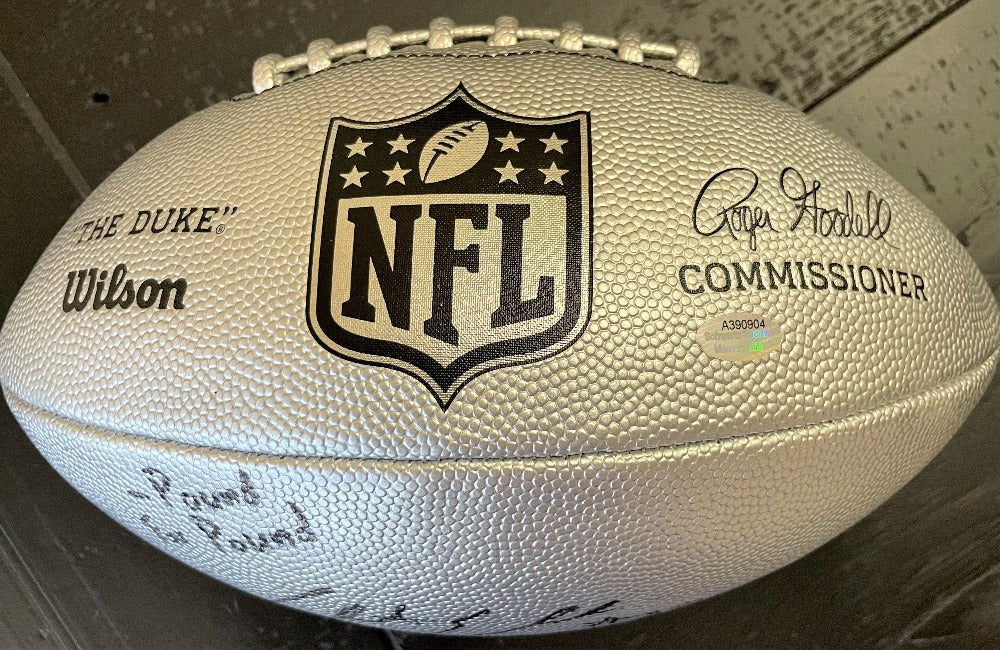 "THE DUKE"®
Wilson
NFL
Roger Goodell
COMMISSIONER
A390904
- Pound
Pound